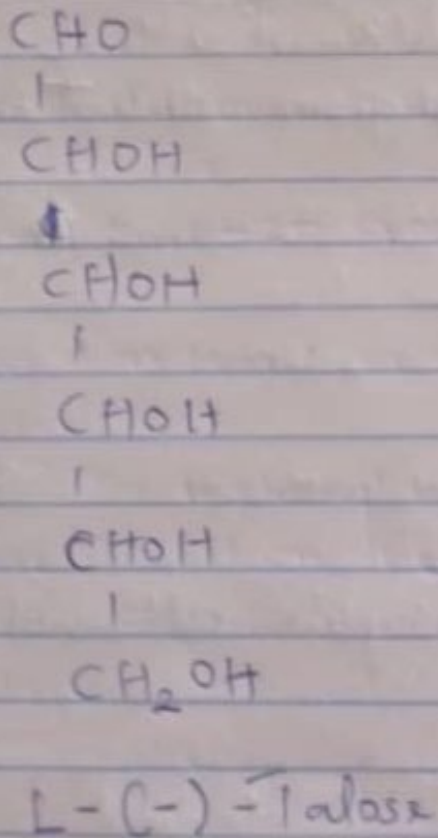 CHO
|
CHOH
|
CHOH
|
CHOH
|
CHOH
|
CH₂OH
L-(-)-Talose